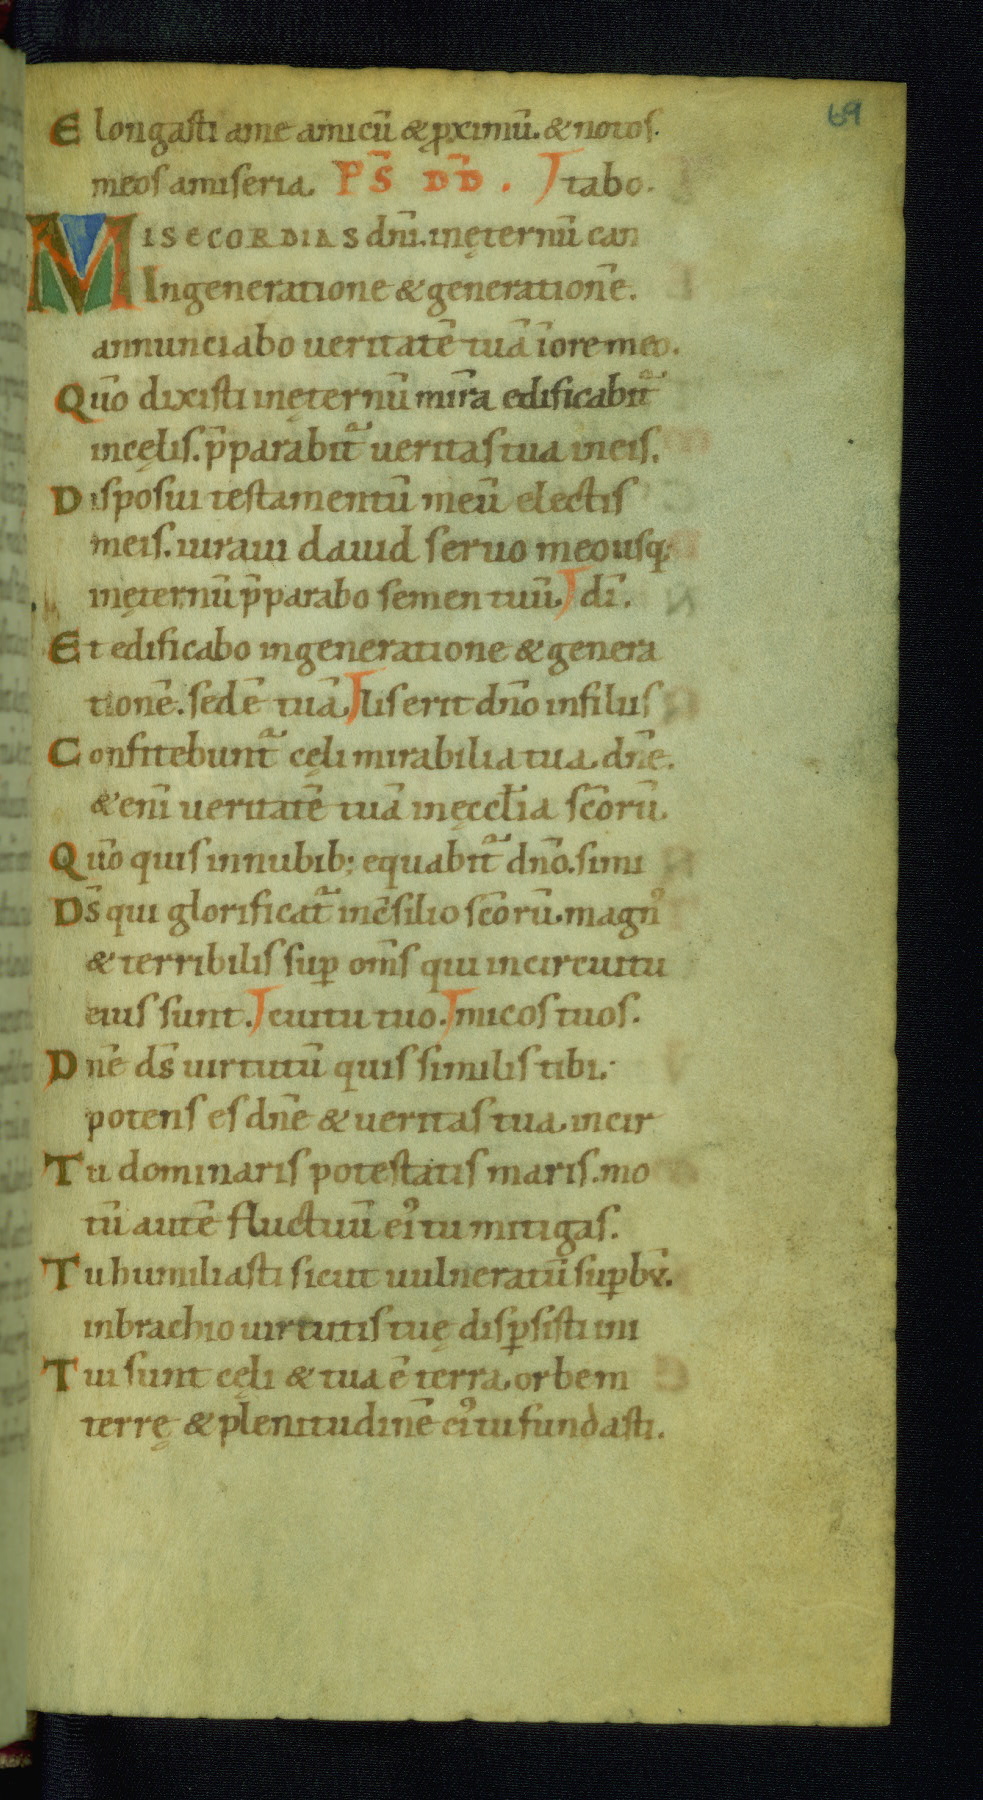 69
Elongasti ame amicū & ꝓximū. & notos.
meos amiseria. PS̄ DD̄. tabo.
MISECORDIAS dn̄i. inęternū can
Ingeneratione & generationē.
annunciabo ueritatē tuā īore meo.
Qūo dixisti inęternū mīra edificabit᷑
incęlis. p̄parabit᷑ ueritas tua ineis.
Disposui testamentū meū electis
meis. iuraui dauid seruo meo usq;
inęternū p̄parabo semen tuū. dī.
Et edificabo ingeneratione & genera
tionē. sedē tuā. lis erit dn̄o infilus
Confitebunt᷑ cęli mirabilia tua dn̄e.
& enī ueritatē tuā inęccl̄ia sc̄orū.
Qūo quis innubib; equabit᷑ dn̄o. simi
DS̄ qui glorificat᷑ inc̄silio sc̄orū. magnꝰ
& terribilis suꝑ om̄s qui incircuitu
eius sunt. cuitu tuo. imicos tuos.
Dn̄e ds̄ uirtutū quis similis tibi.
potens es dn̄e & ueritas tua. incir
Tu dominaris potestatis maris. mo
tū autē fluctuū eiꝰ tu mitigas.
Tu humiliasti sicut uulneratū suꝑbū.
inbrachio uirtutis tuę disꝑsisti ini
Tui sunt cęli & tua ē terra. orbem
terrę & plenitudinē eiꝰ tu fundasti.